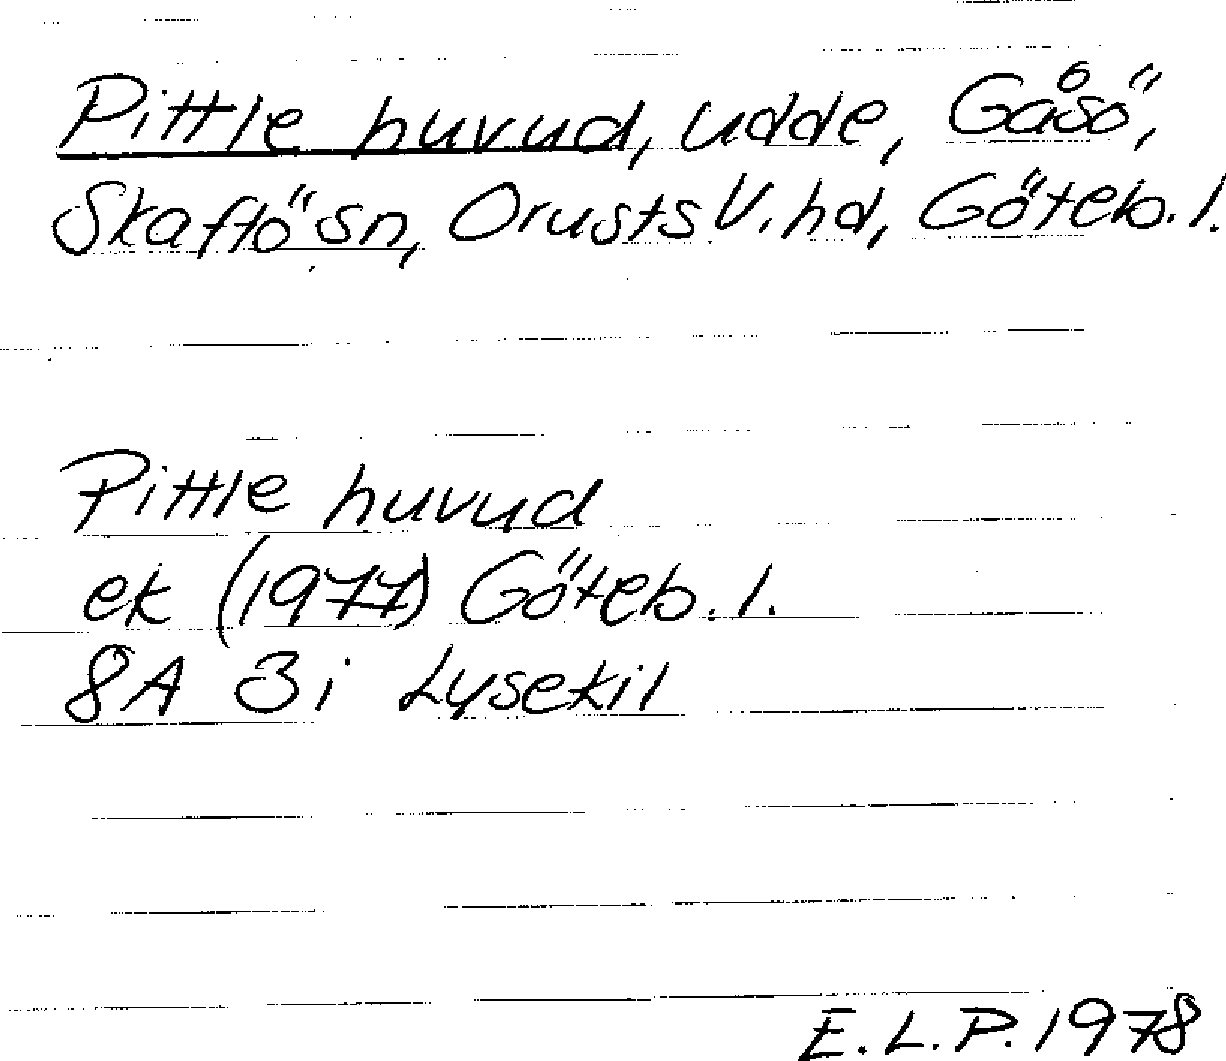 Pittle huvud, udde, Gåsö,
Skaftö sn, Orusts V. hd, Göteb. l.
Pittle huvud
ek (1977) Göteb. l.
8A 3i Lysekil
E. L. P. 1978